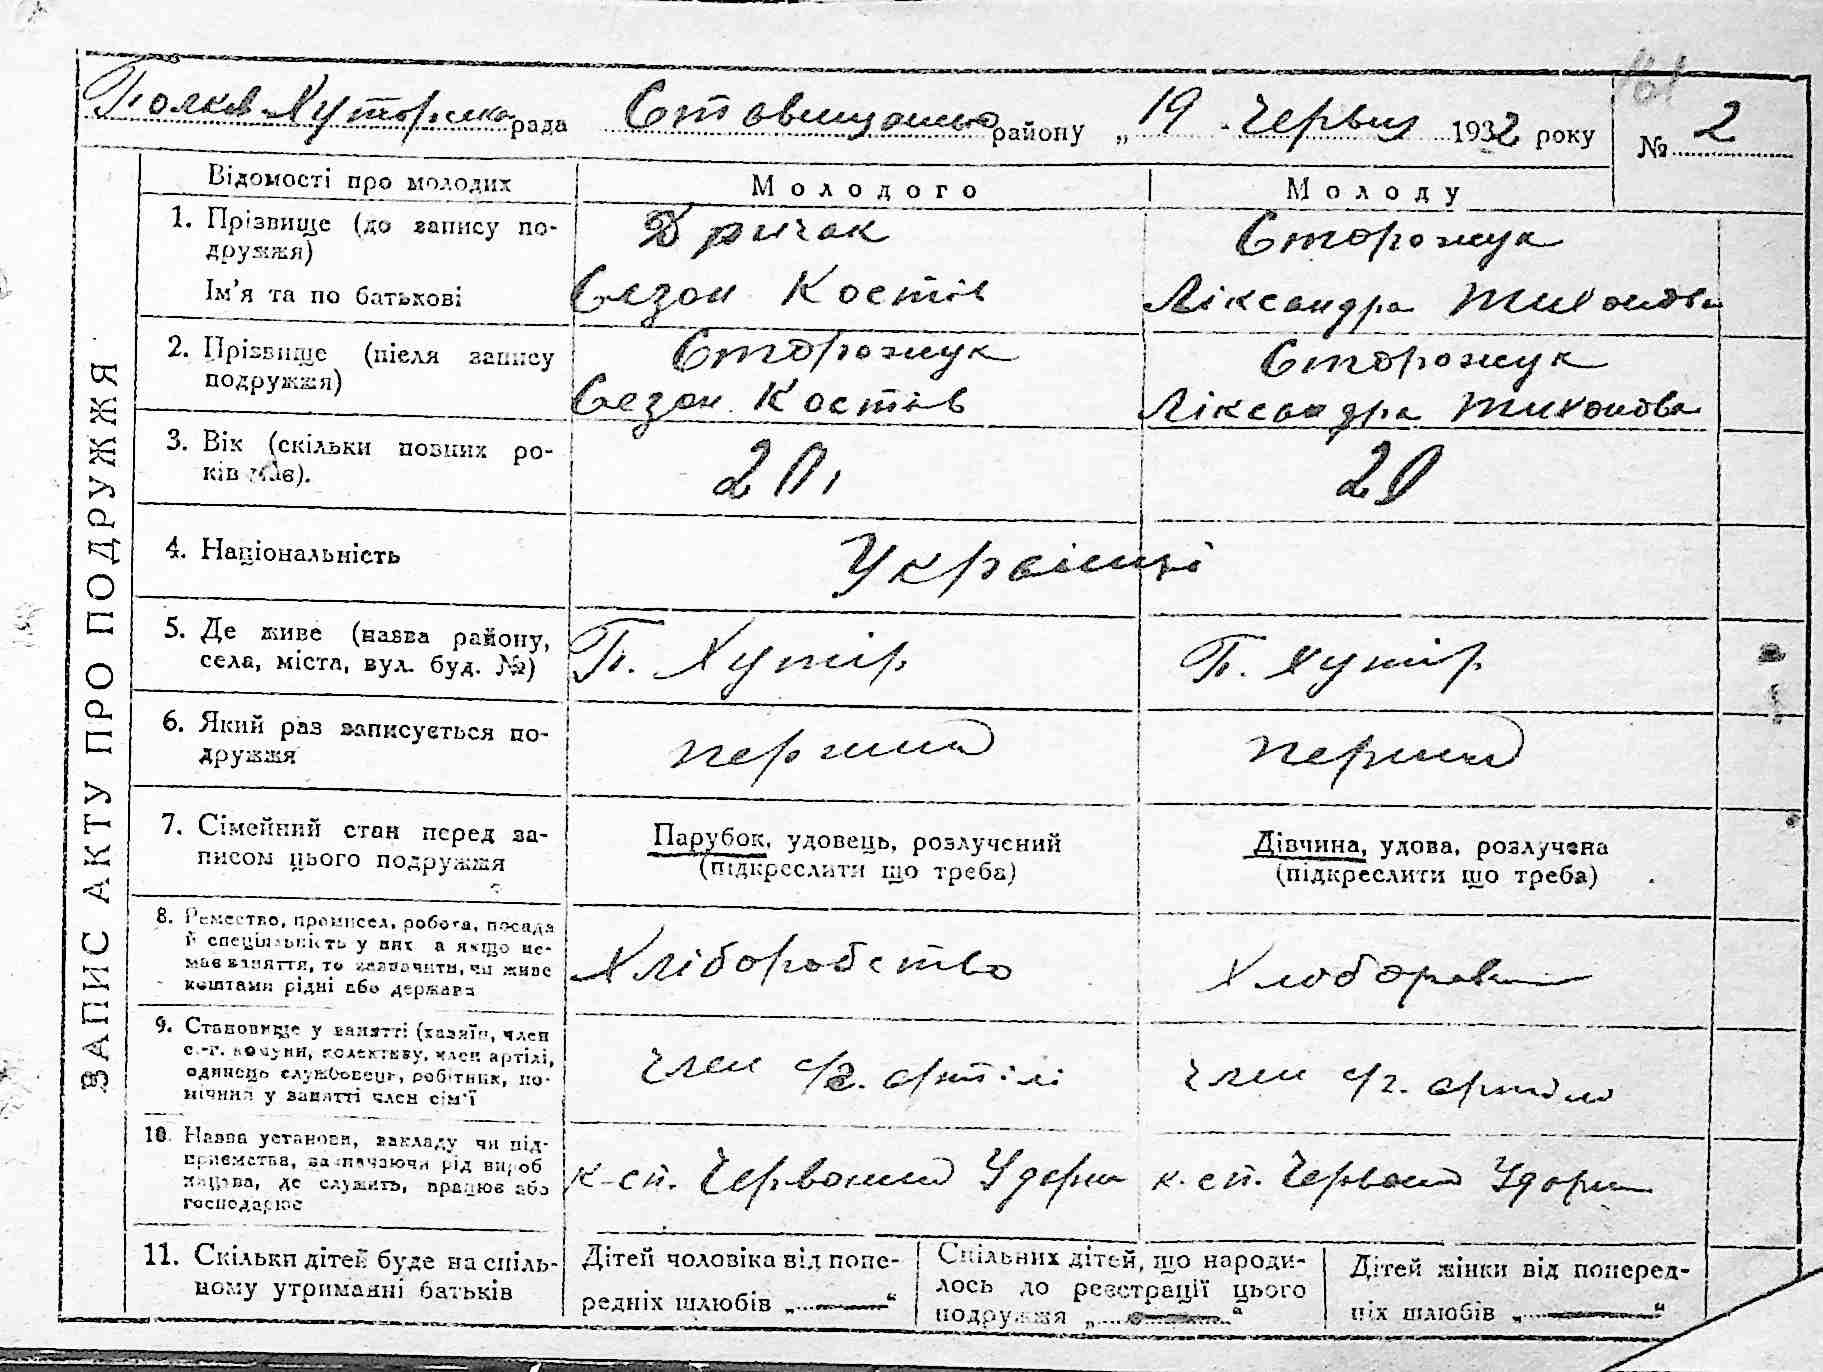 Хуторська рада Ставищанського району „ 19 " червня 1932 року
№ 2
161
Відомості про молодих
Молодого
Молоду
1. Прізвище (до запису по-
дружжя)
Ім'я та по батькові
Дричак
Сезон Костів
Сторожук
Ліксандра Тихонова
2. Прізвище (після запису
подружжя)
Сторожук
Сезон Костів
Сторожук
Ліксандра Тихонова
3. Вік (скільки повних ро-
ків мав).
20
20
4. Національність
Українці
5. Де живе (назва району,
села, міста, вул. буд. №)
П. Хутір
П. Хутір
6. Який раз записується по-
дружжя
перший
перший
7. Сімейний стан перед за-
писом цього подружжя
Парубок, удовець, розлучений
(підкреслити що треба)
Дівчина, удова, розлучена
(підкреслити що треба)
8. Ремество, промисел, робота, посада
й спеціяльність у них а якщо не-
має заняття, то зазначити, чи живе
коштами рідні або держава
Хліборобство
9. Становище у занятті (хазяїн, член
с.-г. комуни, колективу, член артілі,
одинець службовець, робітник, по-
мічний у занятті член сім'ї
член с/г. артілі
член с/г. артілі
10. Назва установи, закладу чи під-
приємства, зазначаючи рід вироб
ництва, де служить, працює або
господарює
к-сп. Червоний Ударн
к. сп. Червоний Ударн
11. Скільки дітей буде на спіль-
ному утриманні батьків
Дітей чоловіка від попе-
редніх шлюбів „ — "
Спільних дітей, що народи-
лось до реєстрації цього
подружжя „ — "
Дітей жінки від поперед-
ніх шлюбів „ — "
ЗАПИС АКТУ ПРО ПОДРУЖЖЯ